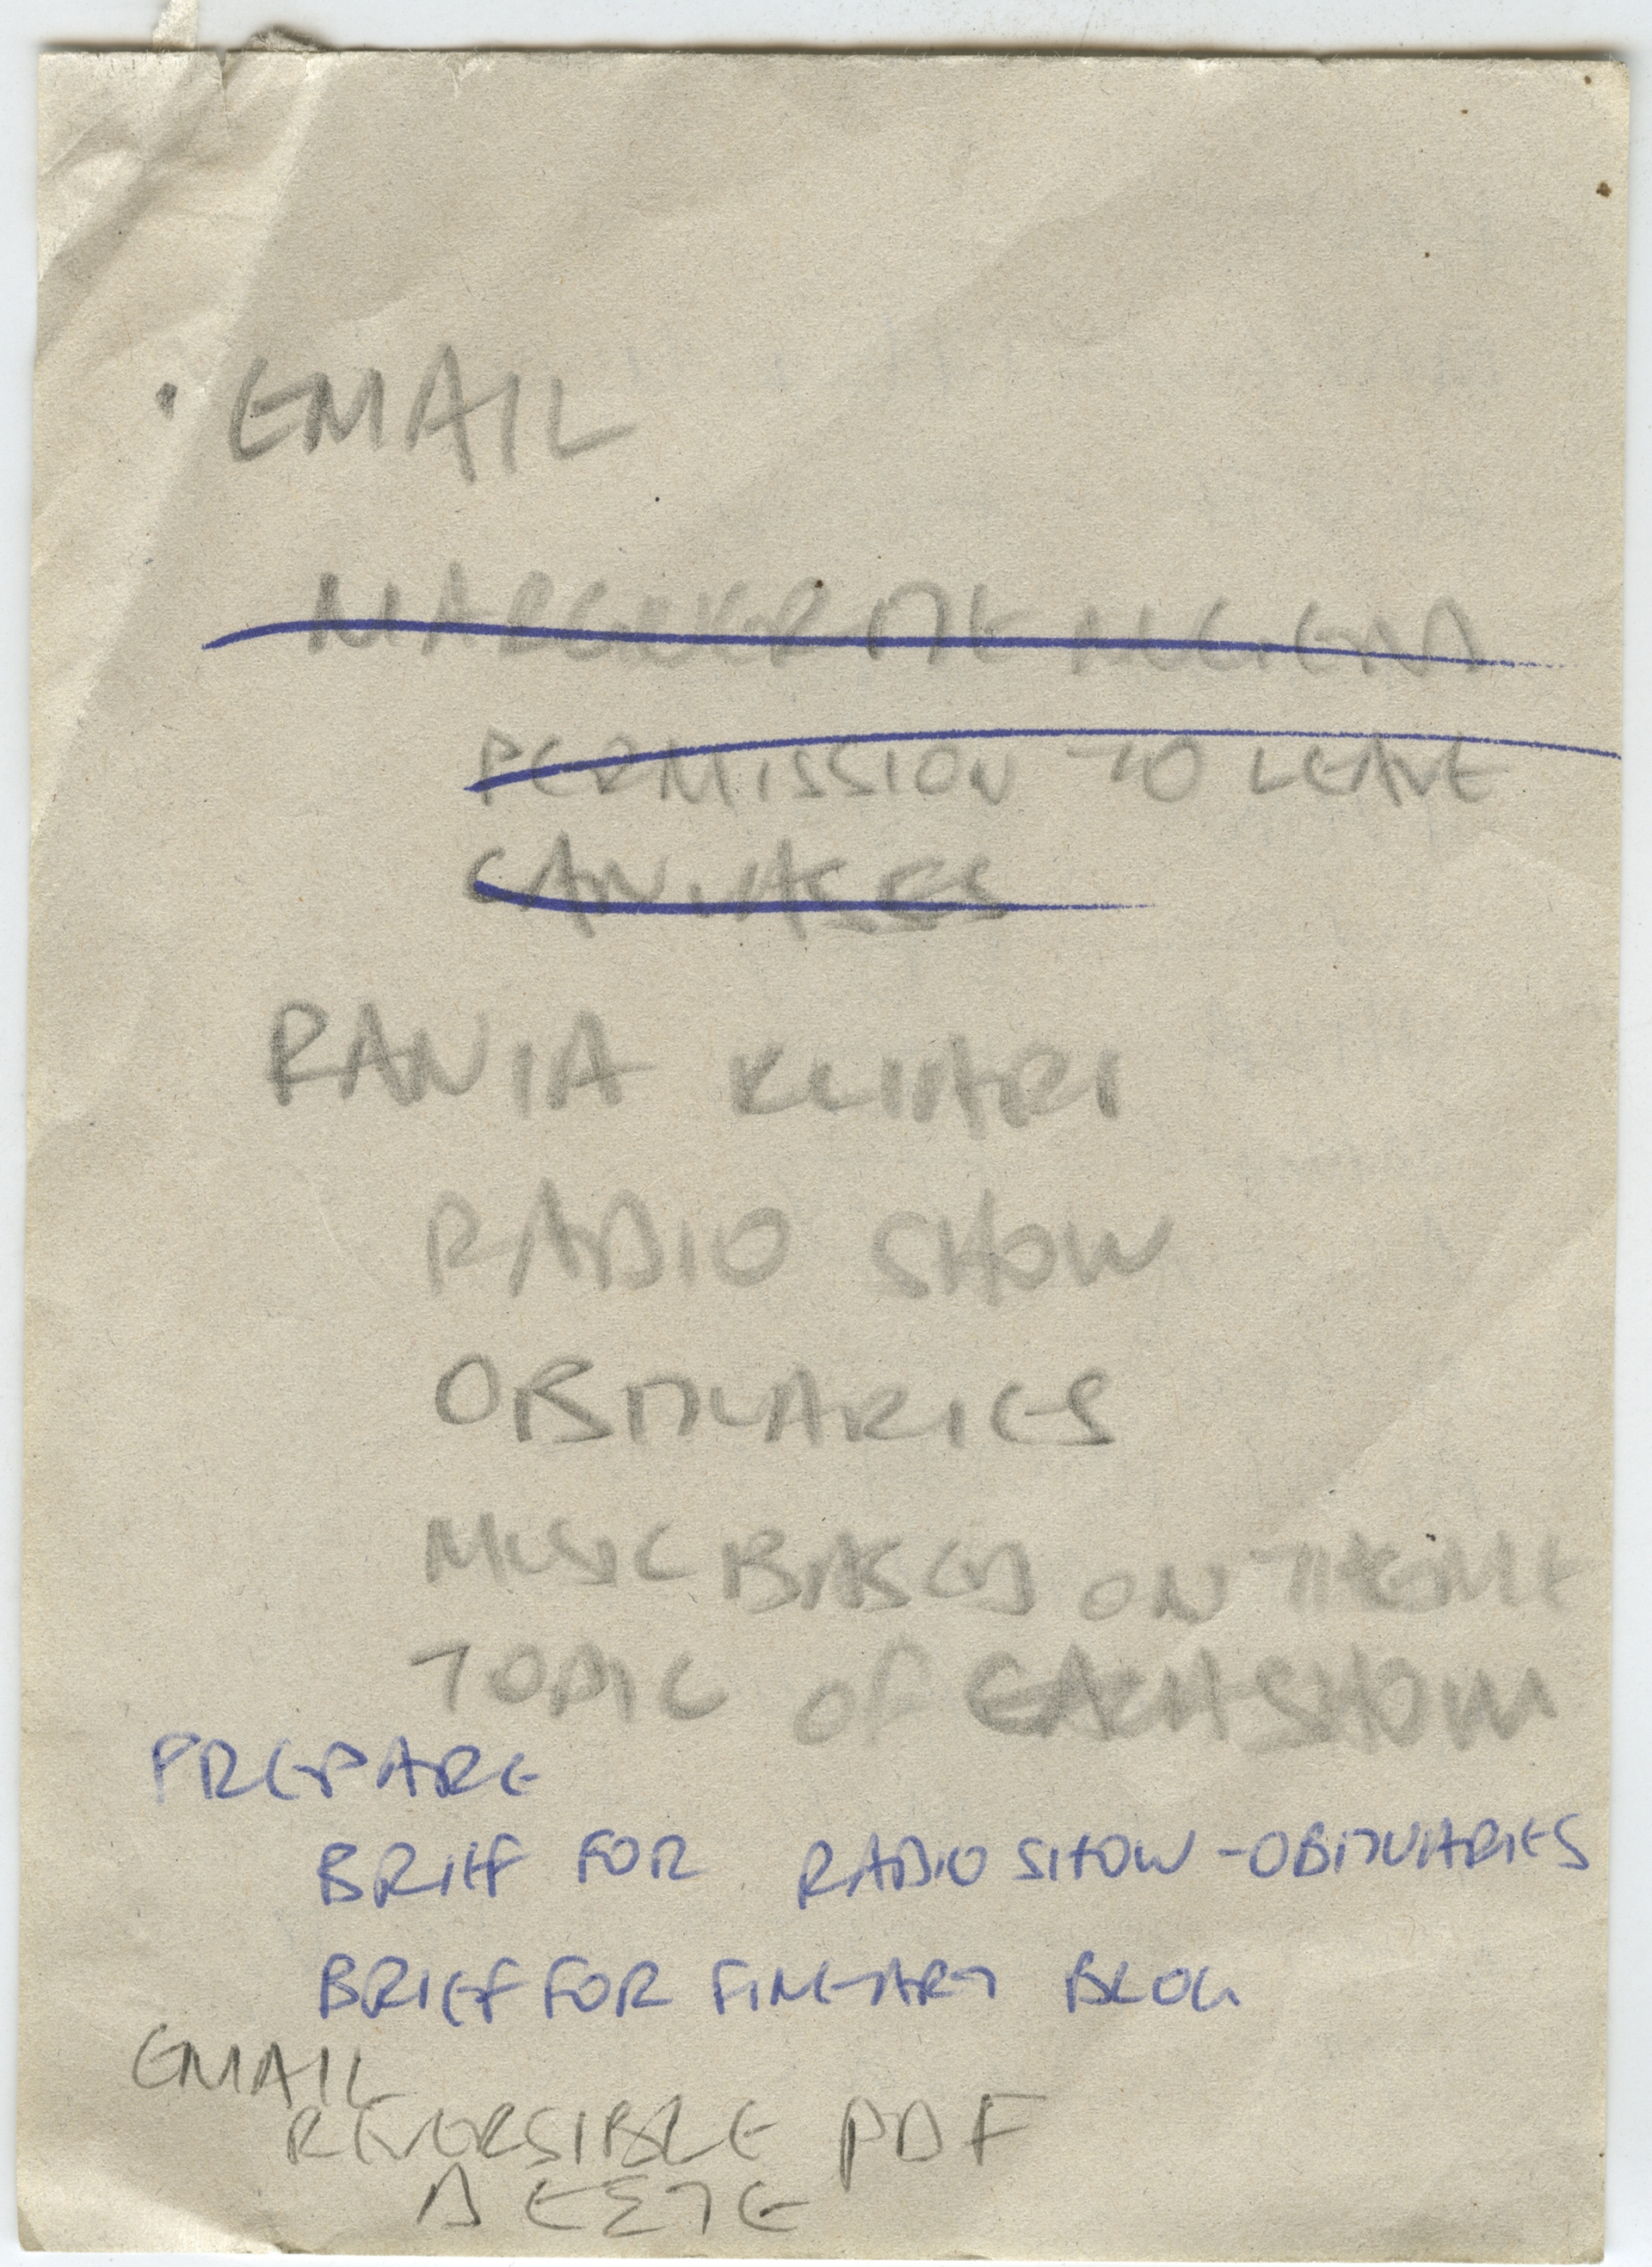 · EMAIL
MARGUERITE
PERMISSION TO LEAVE
CANVASES
RANIA
RADIO SHOW
OBITUARIES
MUSIC BASED ON THEME
TOPIC OF EACH SHOW
PREPARE
BRIEF FOR RADIO SHOW - OBITUARIES
BRIEF FOR FINE ART BLOG
EMAIL
REVERSIBLE PDF
ΔΕΣΤΕ